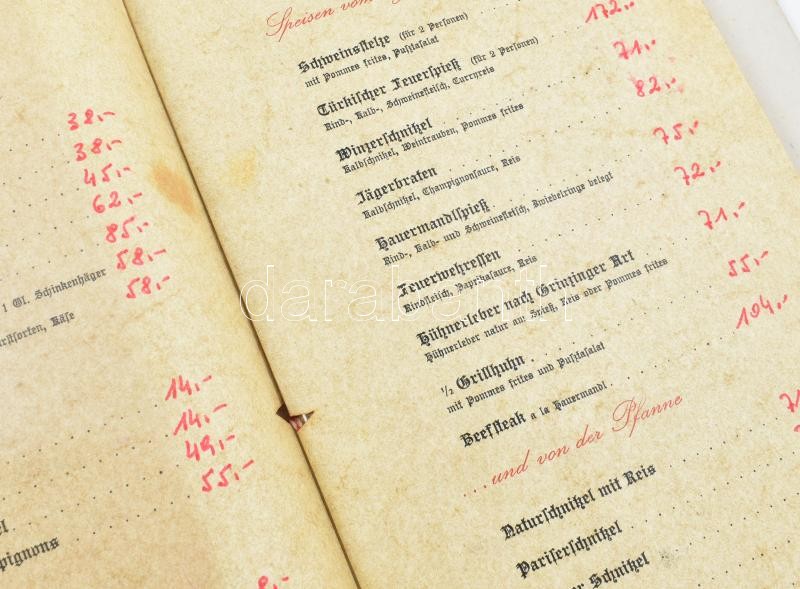 38,-
38,-
45,-
62,-
85,-
58,-
1 Gl. Schinkenhäger
58,-
Käse
14,-
14,-
49,-
55,-
pignons
8,-
Speisen vom
Schweinsstelze (für 2 Personen) 172,-
mit Pommes frites, Pusztasalat
Türkischer Feuerspieß (für 2 Personen) 71,-
Rind-, Kalb-, Schweinefleisch, Curryreis
Winzerschnitzel 82,-
Kalbschnitzel, Weintrauben, Pommes frites
Jägerbraten 75,-
Kalbschnitzel, Champignonsauce, Reis
Hauermandlspieß 72,-
Rind-, Kalb- und Schweinefleisch, Zwiebelringe belegt
Feuerwehressen 71,-
Rindfleisch, Paprikasauce, Reis
Hühnerleber nach Grinzinger Art 55,-
Hühnerleber natur am Spieß, Reis oder Pommes frites
½ Grillhuhn 104,-
mit Pommes frites und Pusztasalat
Beefsteak a la Hauermandl
....und von der Pfanne
Naturschnitzel mit Reis
Pariserschnitzel
er Schnitzel
darabanth